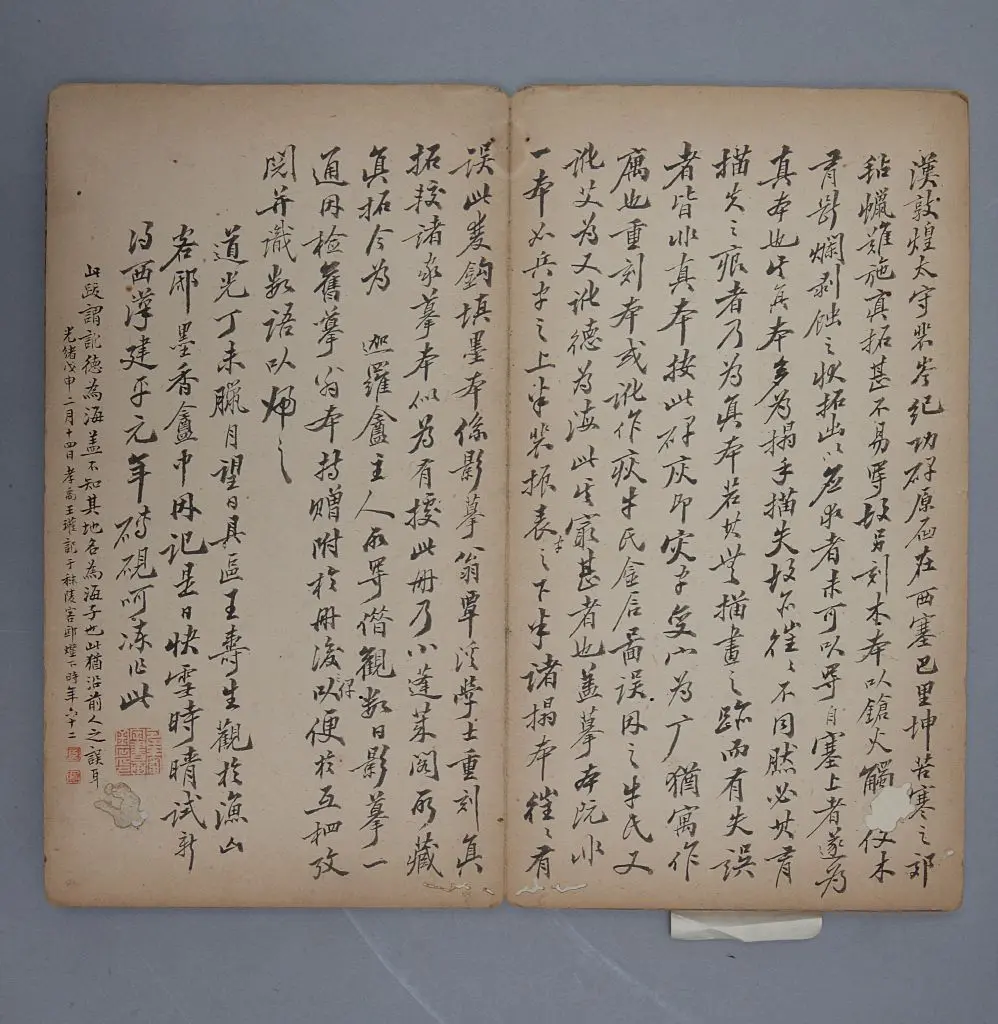 漢敦煌太守裴岑紀功碑原石在西塞巴里坤苦寒之郊
氊蠟難施真拓甚不易得故另刻木本以鎗火觸仪木
有斷爛剥蝕之狀拓出以应求者未可以得自塞上者遂为
真本也其真本多为搨手描失故不徃〻不同然必其有
描失之痕者乃为真本若其無描畫之跡而有失誤
者皆非真本按此碑灰即灾字变宀为广猶寓作
庽也重刻本或訛作疢牛氏金石圖誤因之牛氏又
訛艾为又訛德为海此其最甚者也蓋摹本既非
一本如兵字之上半裴振表字之下半諸搨本徃〻有
誤此雙鈎填墨本係影摹翁覃溪學士重刻真
拓校諸家摹本似为有據此册乃小蓬莱閣所藏
真拓今为 迦羅龕主人所得借觀数日影摹一
通因检舊摹翁本持贈附於册後以便於互相攷
閱并識数語以歸之
道光丁未臘月望日具區王壽生觀於漁山
客邸墨香龕中因記是日快雪時晴试新
得西漢建平元年磚硯呵凍作此
此跋謂訛德為海盖不知其地名為海子也此猶沿前人之誤耳
光緒戊申二月十四日孝禹王瓘記于秣陵客邸燈下時年六十二